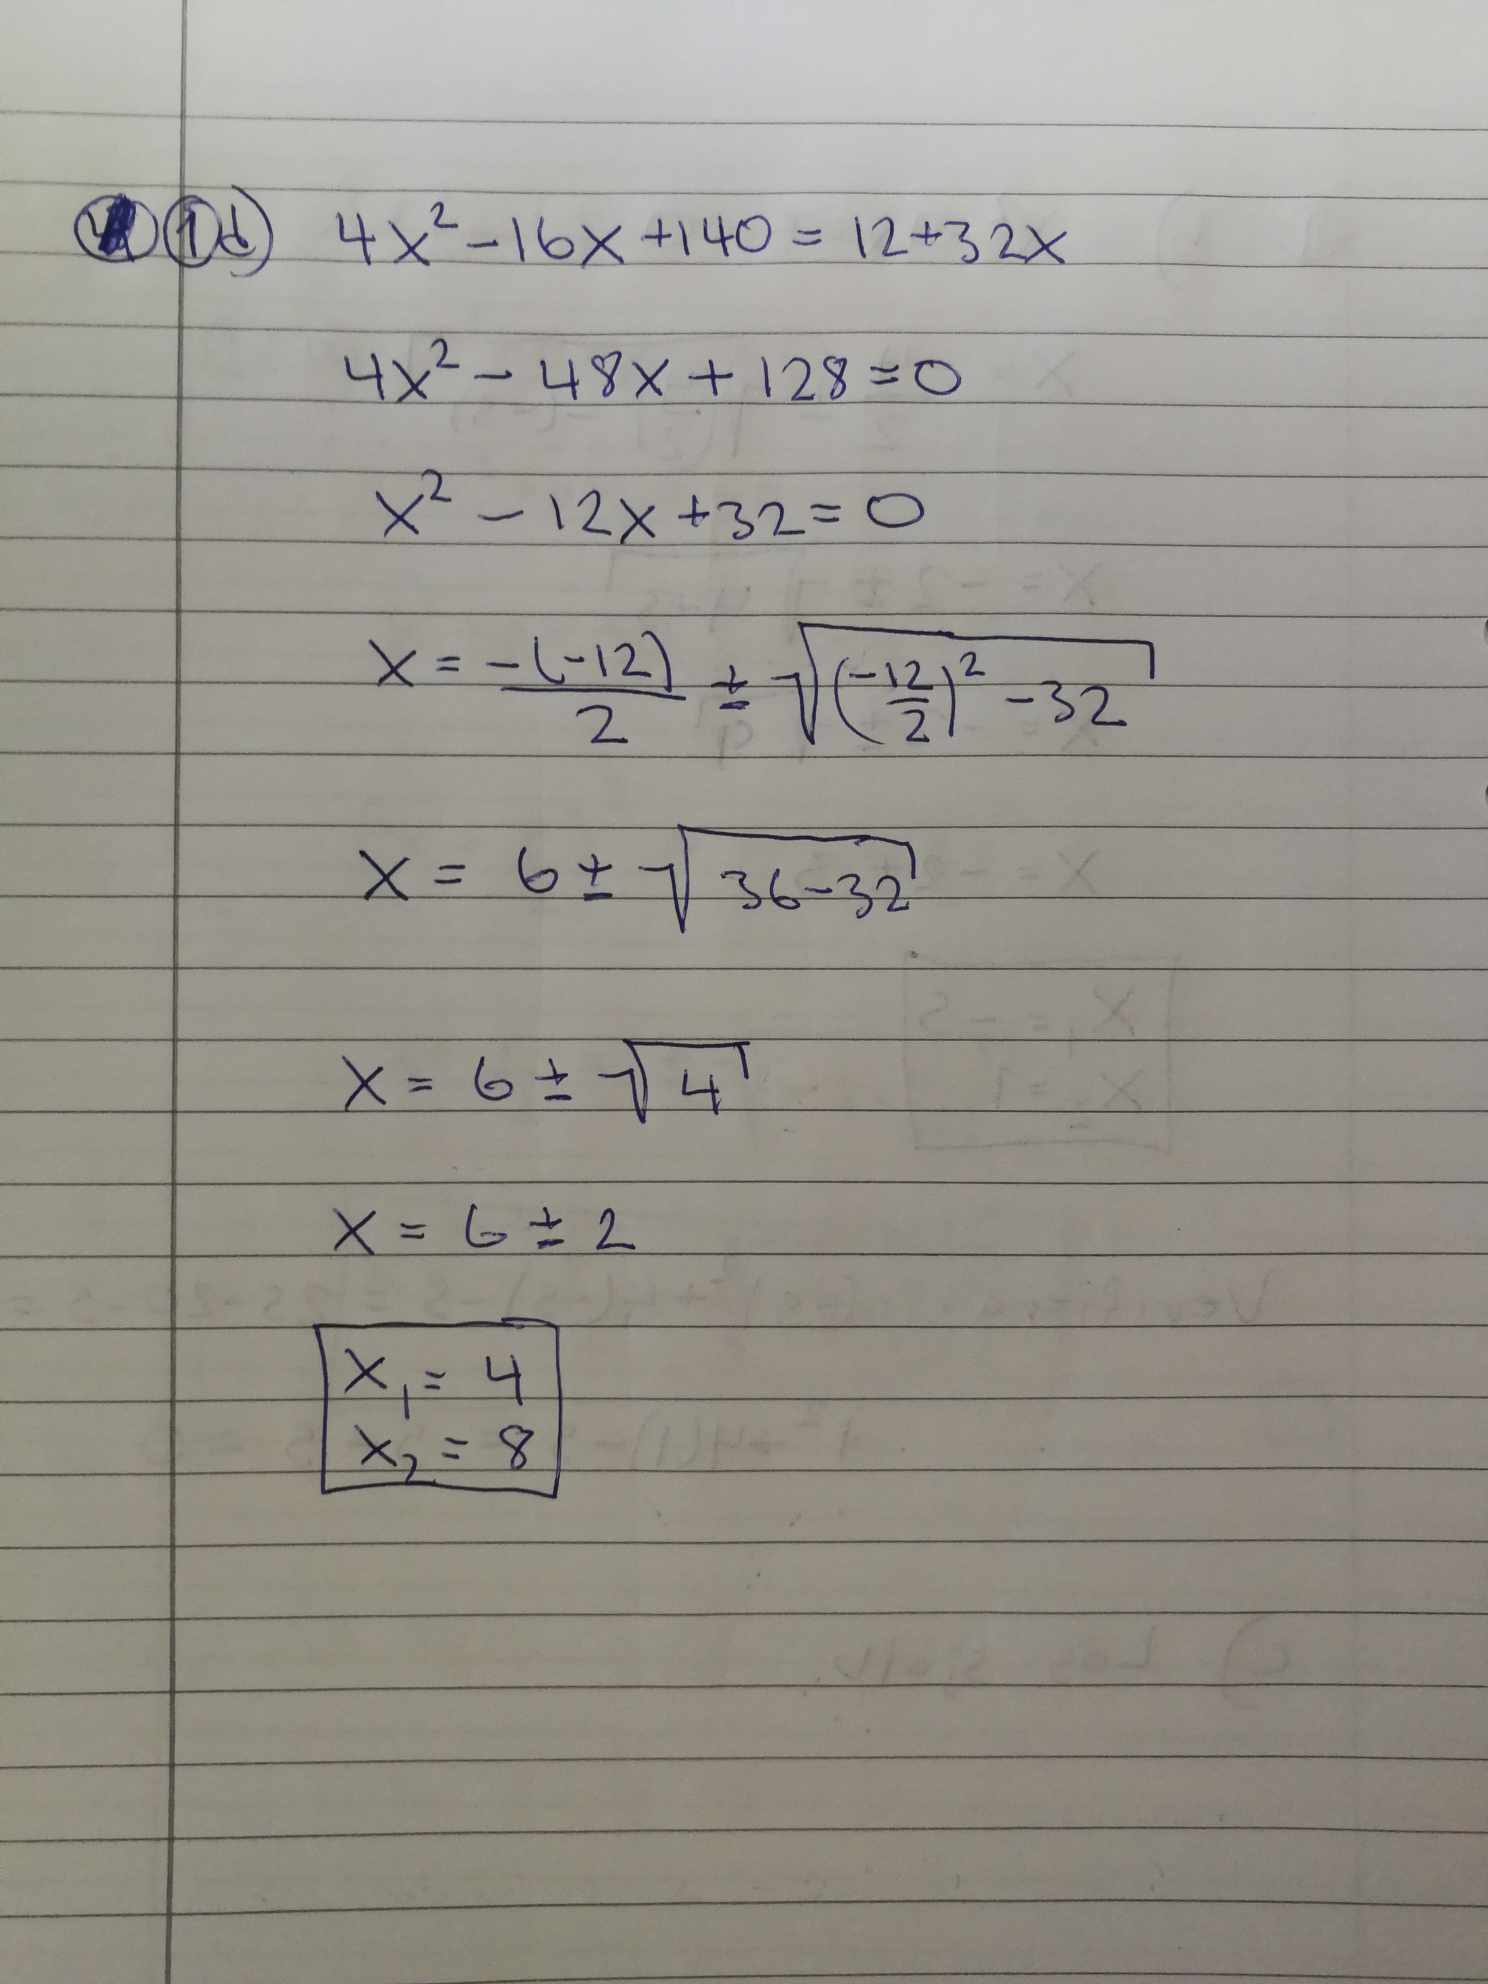 1d) 4x² - 16x + 140 = 12 + 32x
4x² - 48x + 128 = 0
x² - 12x + 32 = 0
x = -(-12)/2 ± √((-12/2)² - 32)
x = 6 ± √(36-32)
x = 6 ± √4
x = 6 ± 2
x₁ = 4
x₂ = 8